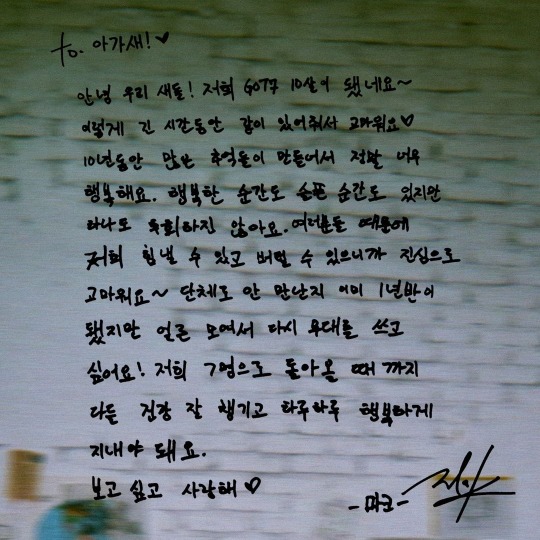 to. 아가새! ♥
안녕 우리 새들! 저희 GOT7 10살이 됐네요~
이렇게 긴 시간동안 같이 있어줘서 고마워요♡
10년동안 많은 추억들이 만들어서 정말 너무
행복해요. 행복한 순간도 슬픈 순간도 있지만
하나도 후회하진 않아요. 여러분들 때문에
저희 힘낼 수 있고 버틸 수 있으니까 진심으로
고마워요~ 단체로 안 만난지 이미 1년반이
됐지만 얼른 모여서 다시 무대를 쓰고
싶어요! 저희 7명으로 돌아올 때 까지
다들 건강 잘 챙기고 하루하루 행복하게
지내야 돼요.
보고 싶고 사랑해♡
-마크-